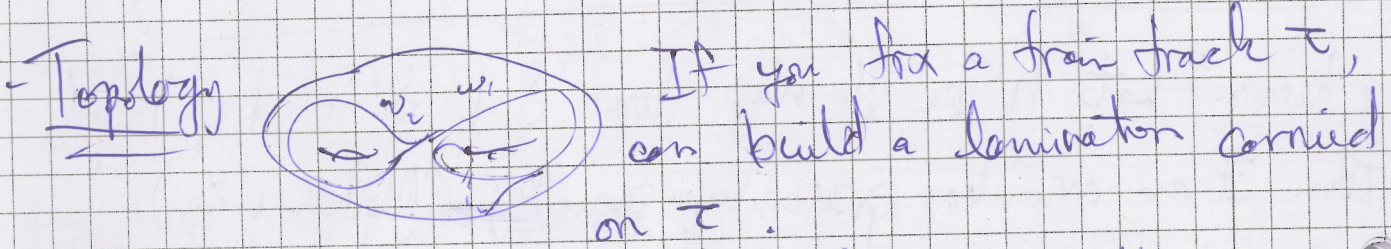 - Topology
w₂ w₁
If you fix a train track τ,
can build a lamination carried
on τ.